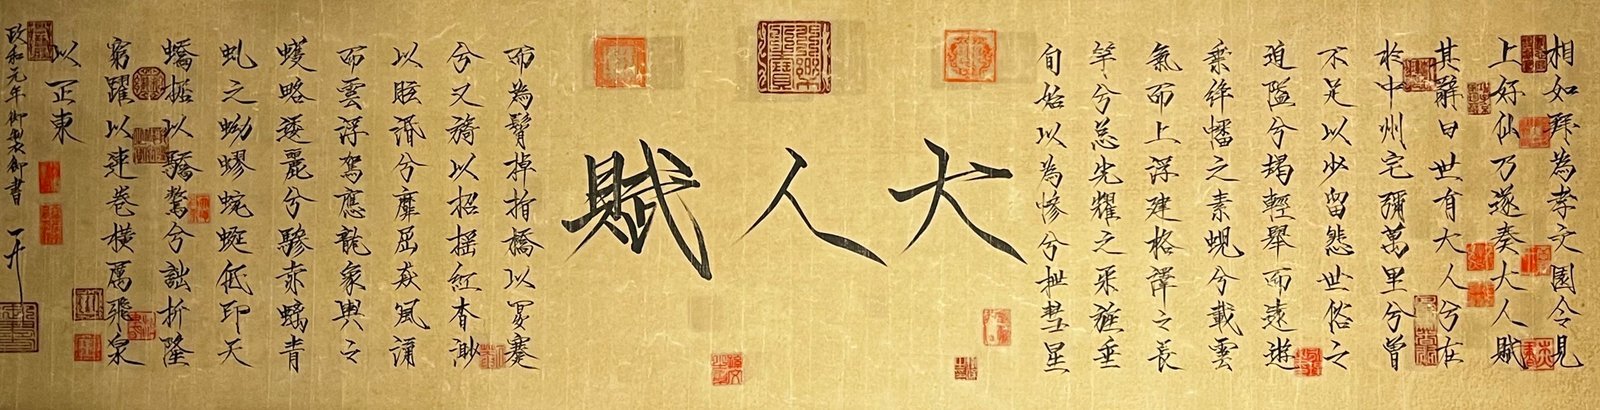 相如拜為孝文園令見
上好仙乃遂奏大人賦
其辭曰世有大人兮在
於中州宅彌萬里兮曾
不足以少留悲世俗之
迫隘兮朅輕舉而遠遊
乘絳幡之素蜺兮載雲
氣而上浮建格澤之長
竿兮总光耀之采旄垂
旬始以為幓兮抴彗星
大人賦
而為髾掉指橋以蹇
兮又旖以招摇紅杳渺
以眩湣兮靡屈猋風涌
而雲浮駕應龍象輿之
蠖略逶麗兮驂赤螭青
虬之蚴蟉蜿蜒低卬天
蟜据以驕驁兮詘折隆
窮躍以連卷橫厲飛泉
以正東
政和元年御製御書